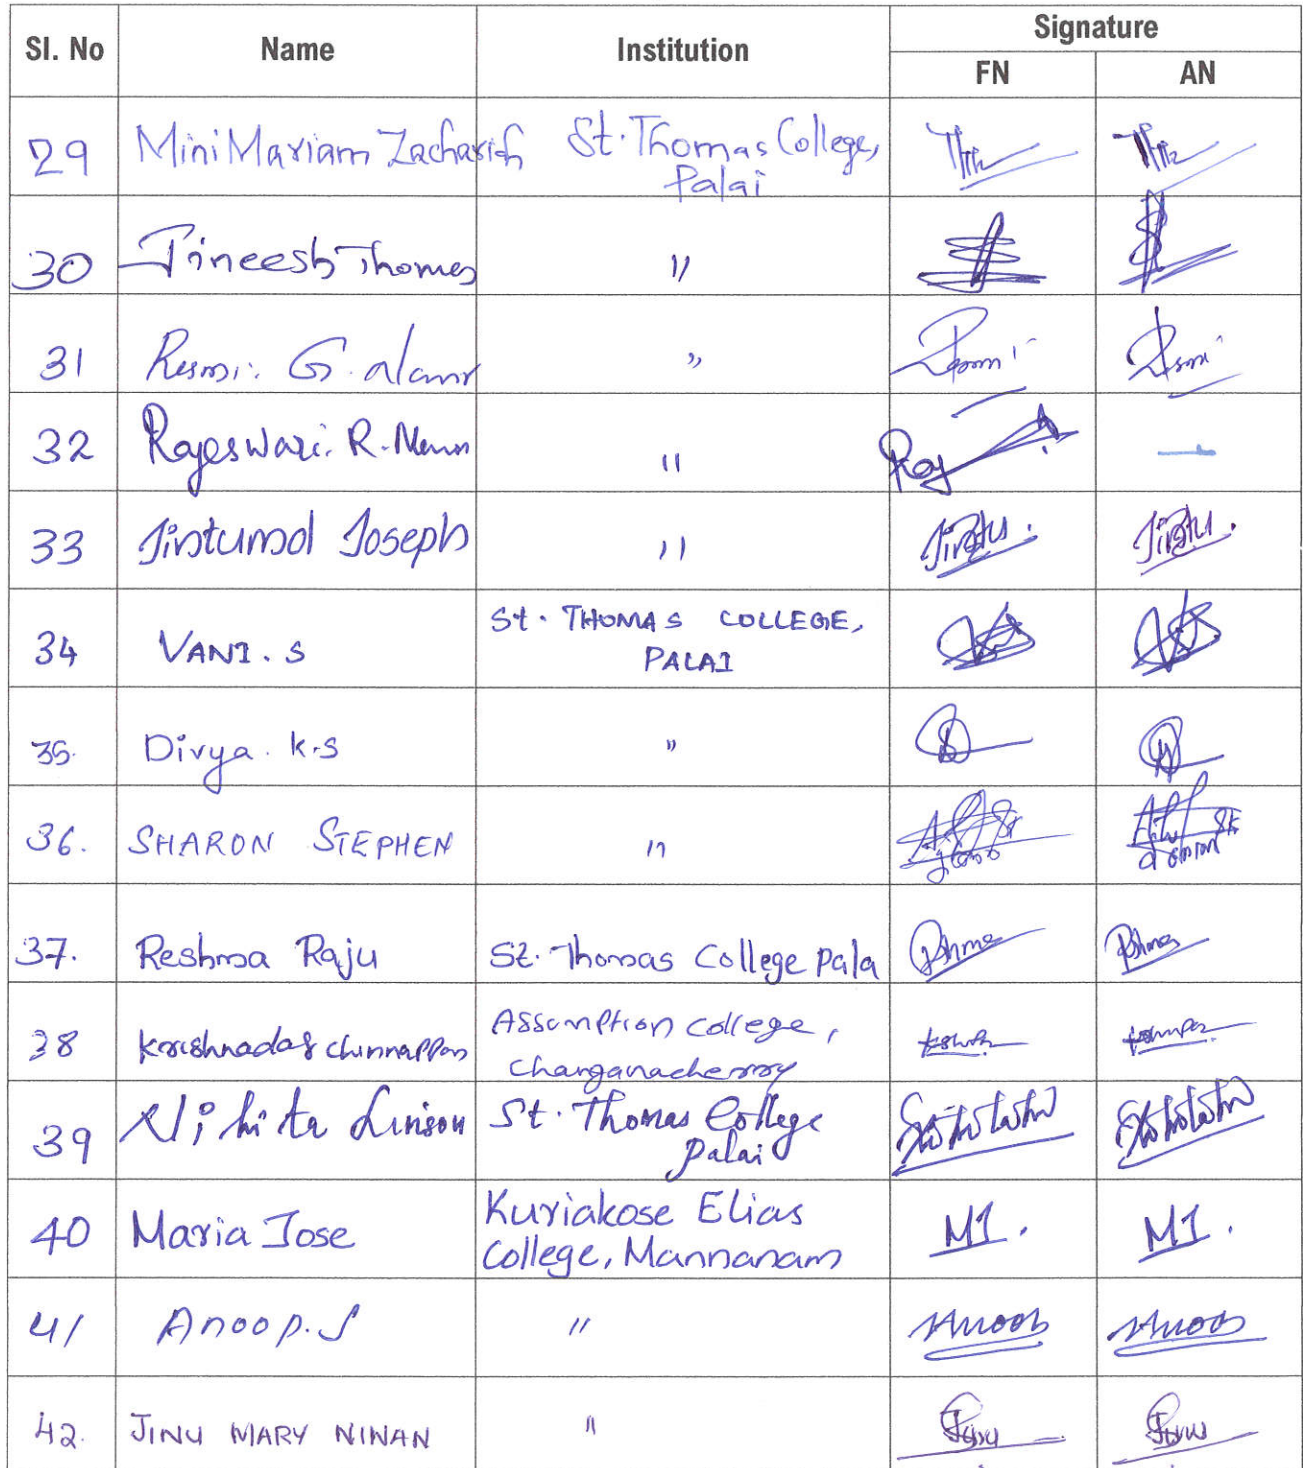 Sl. No Name Institution Signature
FN AN
29 Mini Mariam Zachariah St. Thomas College,
Palai
30 Jineesh Thomas "
31 Resmi. G. "
32 Rajeswari. R. Menon "
33 Jintumol Joseph "
34 VANI. S St. THOMAS COLLEGE,
PALAI
35. Divya. K.S "
36. SHARON STEPHEN "
37. Reshma Raju St. Thomas College Pala
38 Krishnadas Chinnappan Assumption College,
Changanacherry
39 Nikita Linson St. Thomas College
Palai
40 Maria Jose Kuriakose Elias
College, Mannanam
41 Anoop. S "
42. JINU MARY NINAN "